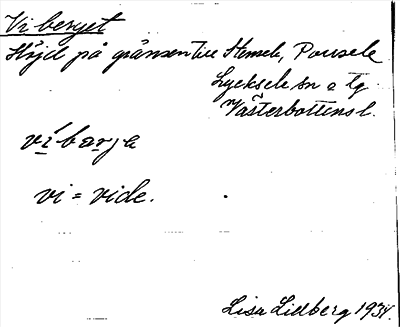 Viberget
Höjd på gränsen till Stensele, Pausele
Lycksele sn o tg.
Västerbottens l.
vi = vide.
Lisa Lidberg 1934.